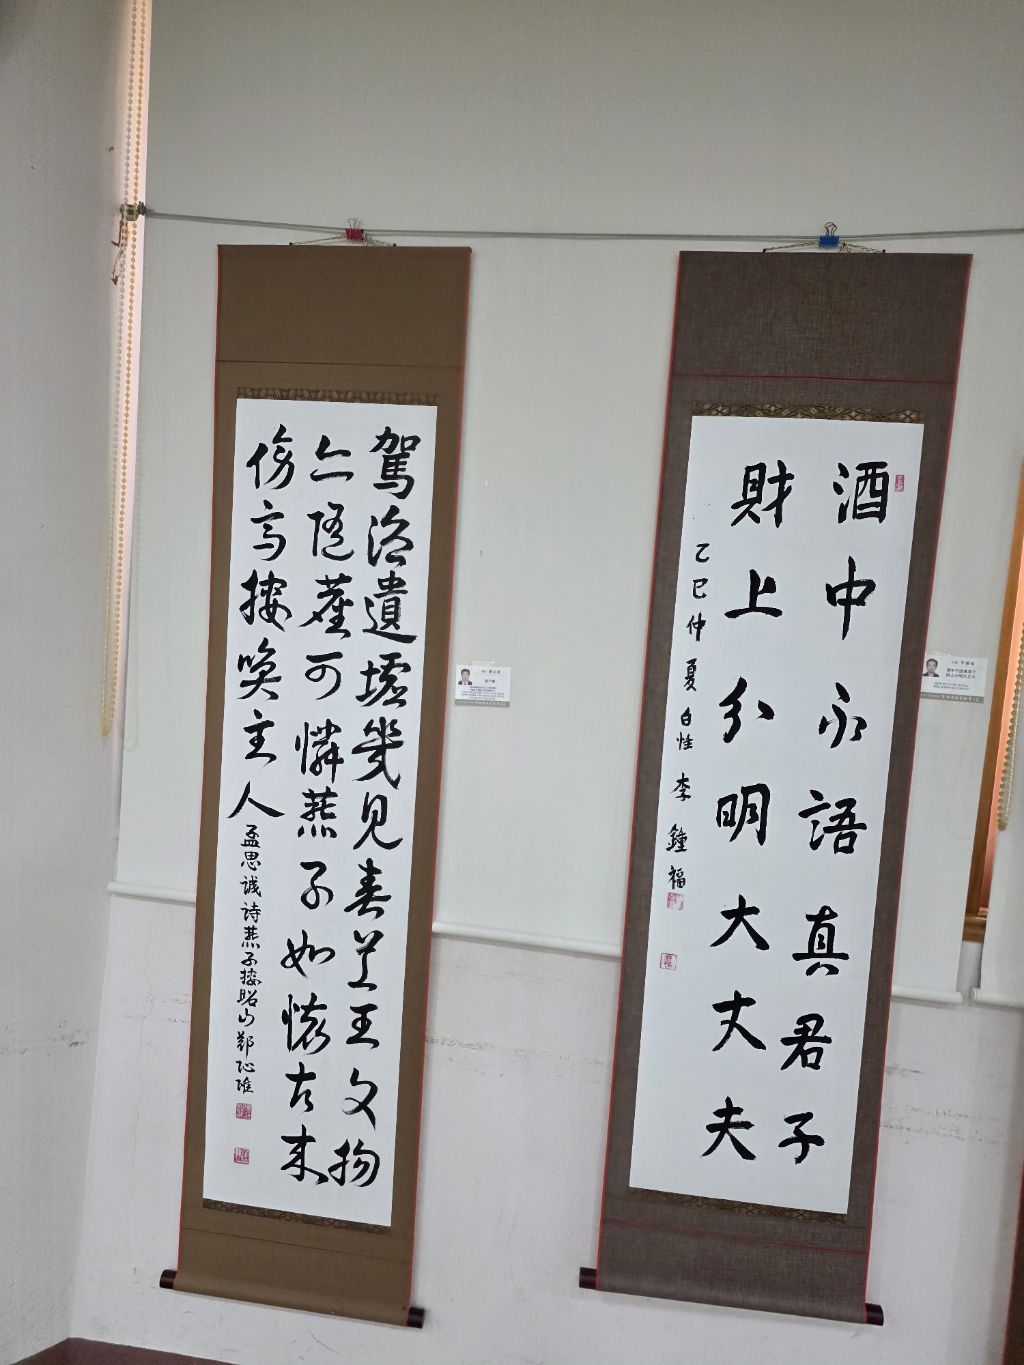 酒中不語真君子
財上分明大丈夫
乙巳仲夏 白性 李鐘福
駕洛遺墟幾見春首王文物
亦隨塵可憐燕子如懷古來
傍高樓喚主人
孟思誠詩燕子樓 昭山 鄭